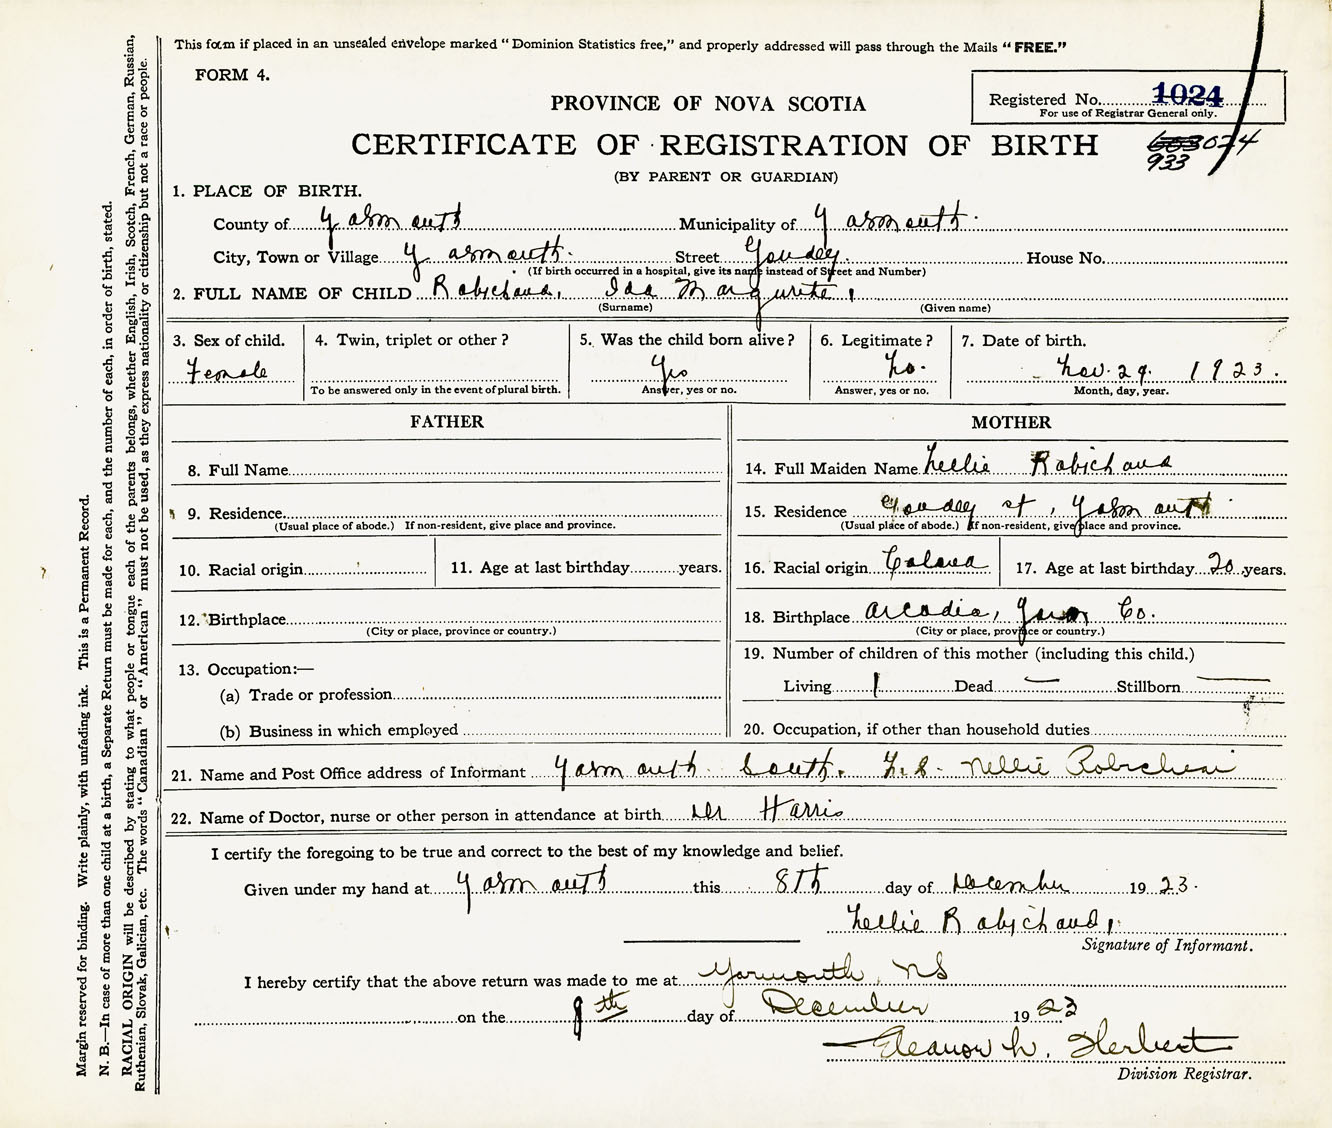 This form if placed in an unsealed envelope marked "Dominion Statistics free," and properly addressed will pass through the Mails "FREE."
FORM 4.
Registered No. 1024
For use of Registrar General only.
PROVINCE OF NOVA SCOTIA
CERTIFICATE OF REGISTRATION OF BIRTH
603024
933
(BY PARENT OR GUARDIAN)
1. PLACE OF BIRTH.
County of Yarmouth Municipality of Yarmouth.
City, Town or Village Yarmouth. Street Goudey. House No.
(If birth occurred in a hospital, give its name instead of Street and Number)
2. FULL NAME OF CHILD Robichaud, Ida Margurete,
(Surname) (Given name)
3. Sex of child. 4. Twin, triplet or other? 5. Was the child born alive? 6. Legitimate? 7. Date of birth.
Female Yes No. Nov. 29. 1923.
To be answered only in the event of plural birth. Answer, yes or no. Answer, yes or no. Month, day, year.
FATHER MOTHER
8. Full Name 14. Full Maiden Name Nellie Robichaud
9. Residence 15. Residence Goudey st, Yarmouth
(Usual place of abode.) If non-resident, give place and province. (Usual place of abode.) If non-resident, give place and province.
10. Racial origin 11. Age at last birthday years. 16. Racial origin Colored 17. Age at last birthday 20 years.
12. Birthplace 18. Birthplace Arcadia, Co.
(City or place, province or country.) (City or place, province or country.)
13. Occupation:— 19. Number of children of this mother (including this child.)
(a) Trade or profession Living 1 Dead — Stillborn —
(b) Business in which employed 20. Occupation, if other than household duties
21. Name and Post Office address of Informant Yarmouth South. N.S. Nellie Robicheau
22. Name of Doctor, nurse or other person in attendance at birth Dr Harris
I certify the foregoing to be true and correct to the best of my knowledge and belief.
Given under my hand at Yarmouth this 8th day of December 1923.
Nellie Robichaud,
Signature of Informant.
I hereby certify that the above return was made to me at Yarmouth, NS
on the 8th day of December 1923
Eleanor W. Herbert
Division Registrar.
Margin reserved for binding. Write plainly, with unfading ink. This is a Permanent Record.
N. B.—In case of more than one child at a birth, a Separate Return must be made for each, and the number of each, in order of birth, stated.
RACIAL ORIGIN will be described by stating to what people or tongue each of the parents belongs, whether English, Irish, Scotch, French, German, Russian,
Ruthenian, Slovak, Galician, etc. The words "Canadian" or "American" must not be used, as they express nationality or citizenship but not a race or people.